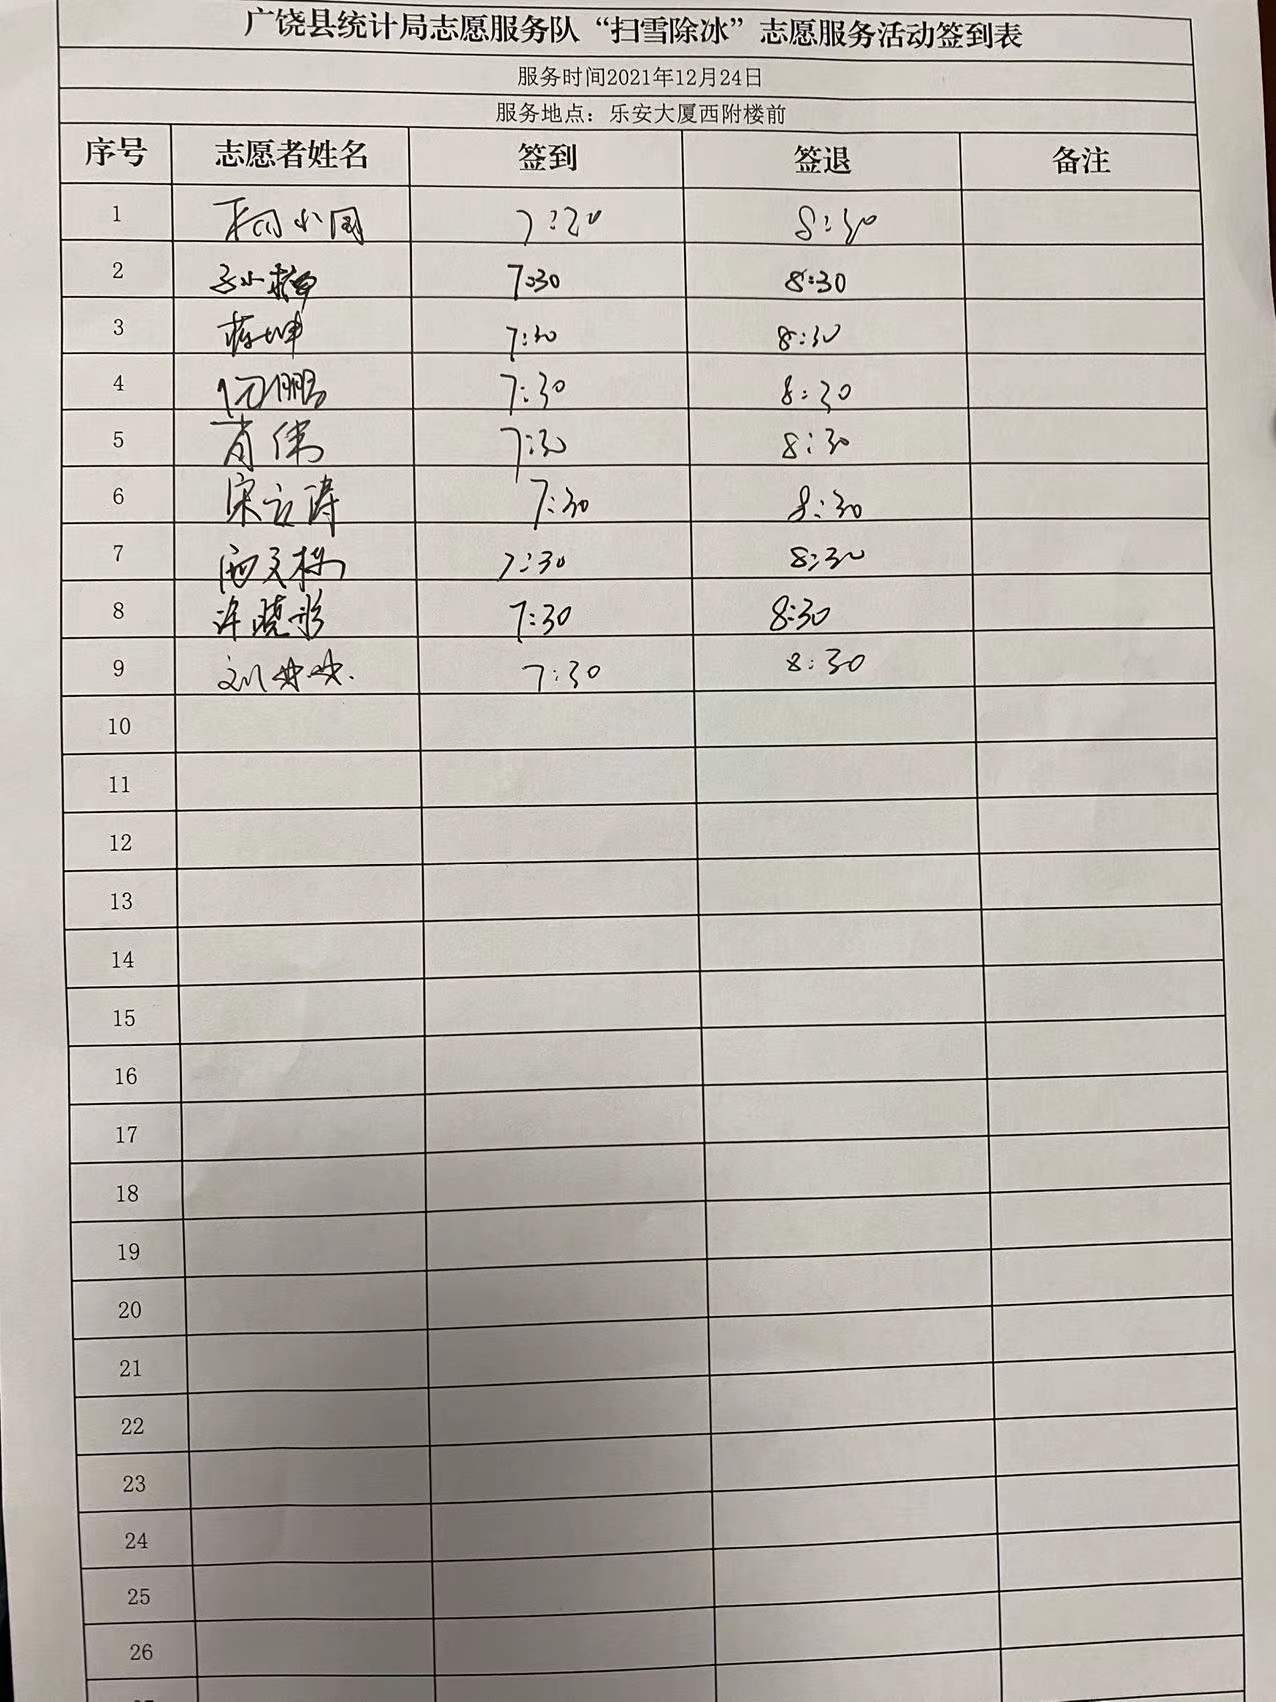 广饶县统计局志愿服务队“扫雪除冰”志愿服务活动签到表
服务时间2021年12月24日
服务地点：乐安大厦西附楼前
序号 志愿者姓名 签到 签退 备注
1 7:20 8:30
2 7:30 8:30
3 蒋坤 7:30 8:30
4 7:30 8:30
5 肖伟 7:30 8:30
6 宋立涛 7:30 8:30
7 7:30 8:30
8 许晓彤 7:30 8:30
9 7:30 8:30
10
11
12
13
14
15
16
17
18
19
20
21
22
23
24
25
26